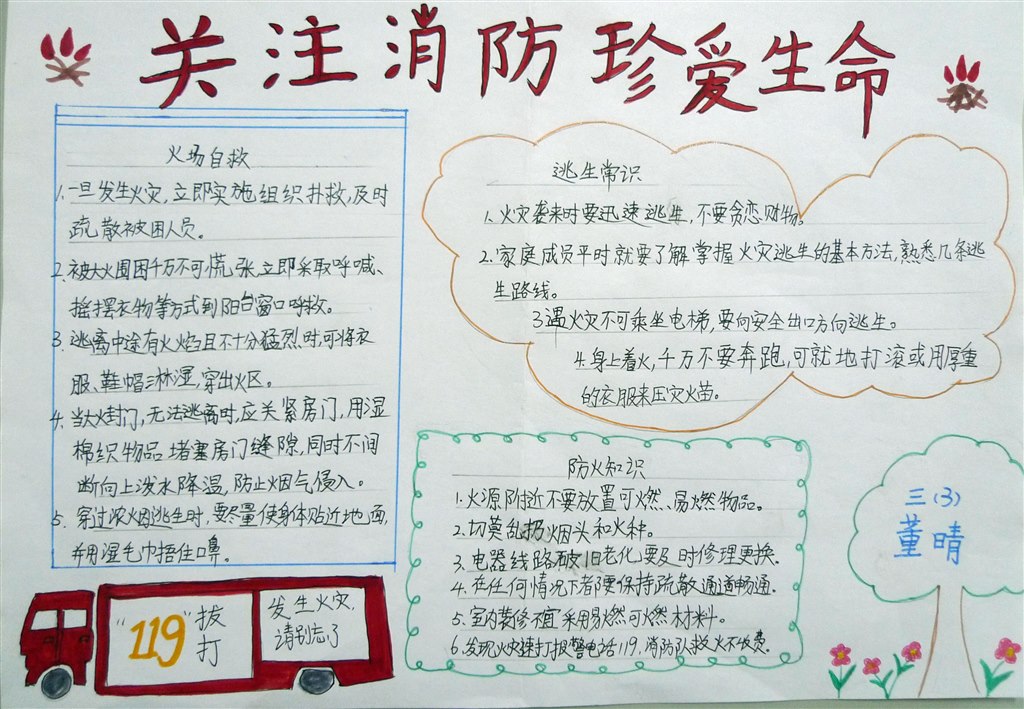 关注消防 珍爱生命
火场自救
1.一旦发生火灾,立即实施组织扑救,及时
疏散被困人员。
2.被大火围困千万不可慌张,立即采取呼喊、
摇摆衣物等方式到阳台窗口呼救。
3.逃离中途有火焰且不十分猛烈时,可将衣
服、鞋帽淋湿,穿出火区。
4.当大火封门,无法逃离时,应关紧房门,用湿
棉织物品堵塞房门缝隙,同时不间
断向上泼水降温,防止烟气侵入。
5.穿过浓烟逃生时,要尽量使身体贴近地面,
并用湿毛巾捂住口鼻。
逃生常识
1.火灾袭来时要迅速逃生,不要贪恋财物。
2.家庭成员平时就要了解掌握火灾逃生的基本方法,熟悉几条逃
生路线。
3遇火灾不可乘坐电梯,要向安全出口方向逃生。
4.身上着火,千万不要奔跑,可就地打滚或用厚重
的衣服来压灾火苗。
防火知识
1.火源附近不要放置可燃、易燃物品。
2.切莫乱扔烟头和火种。
3.电器线路破旧老化要及时修理更换.
4.在任何情况下者都要保持疏散通道畅通.
5.室内装修不宜采用易燃可燃材料。
6.发现火灾速打报警电话119,消防队救火不收费。
三(3)
董晴
"119"拔
打
发生火灾,
请别忘了